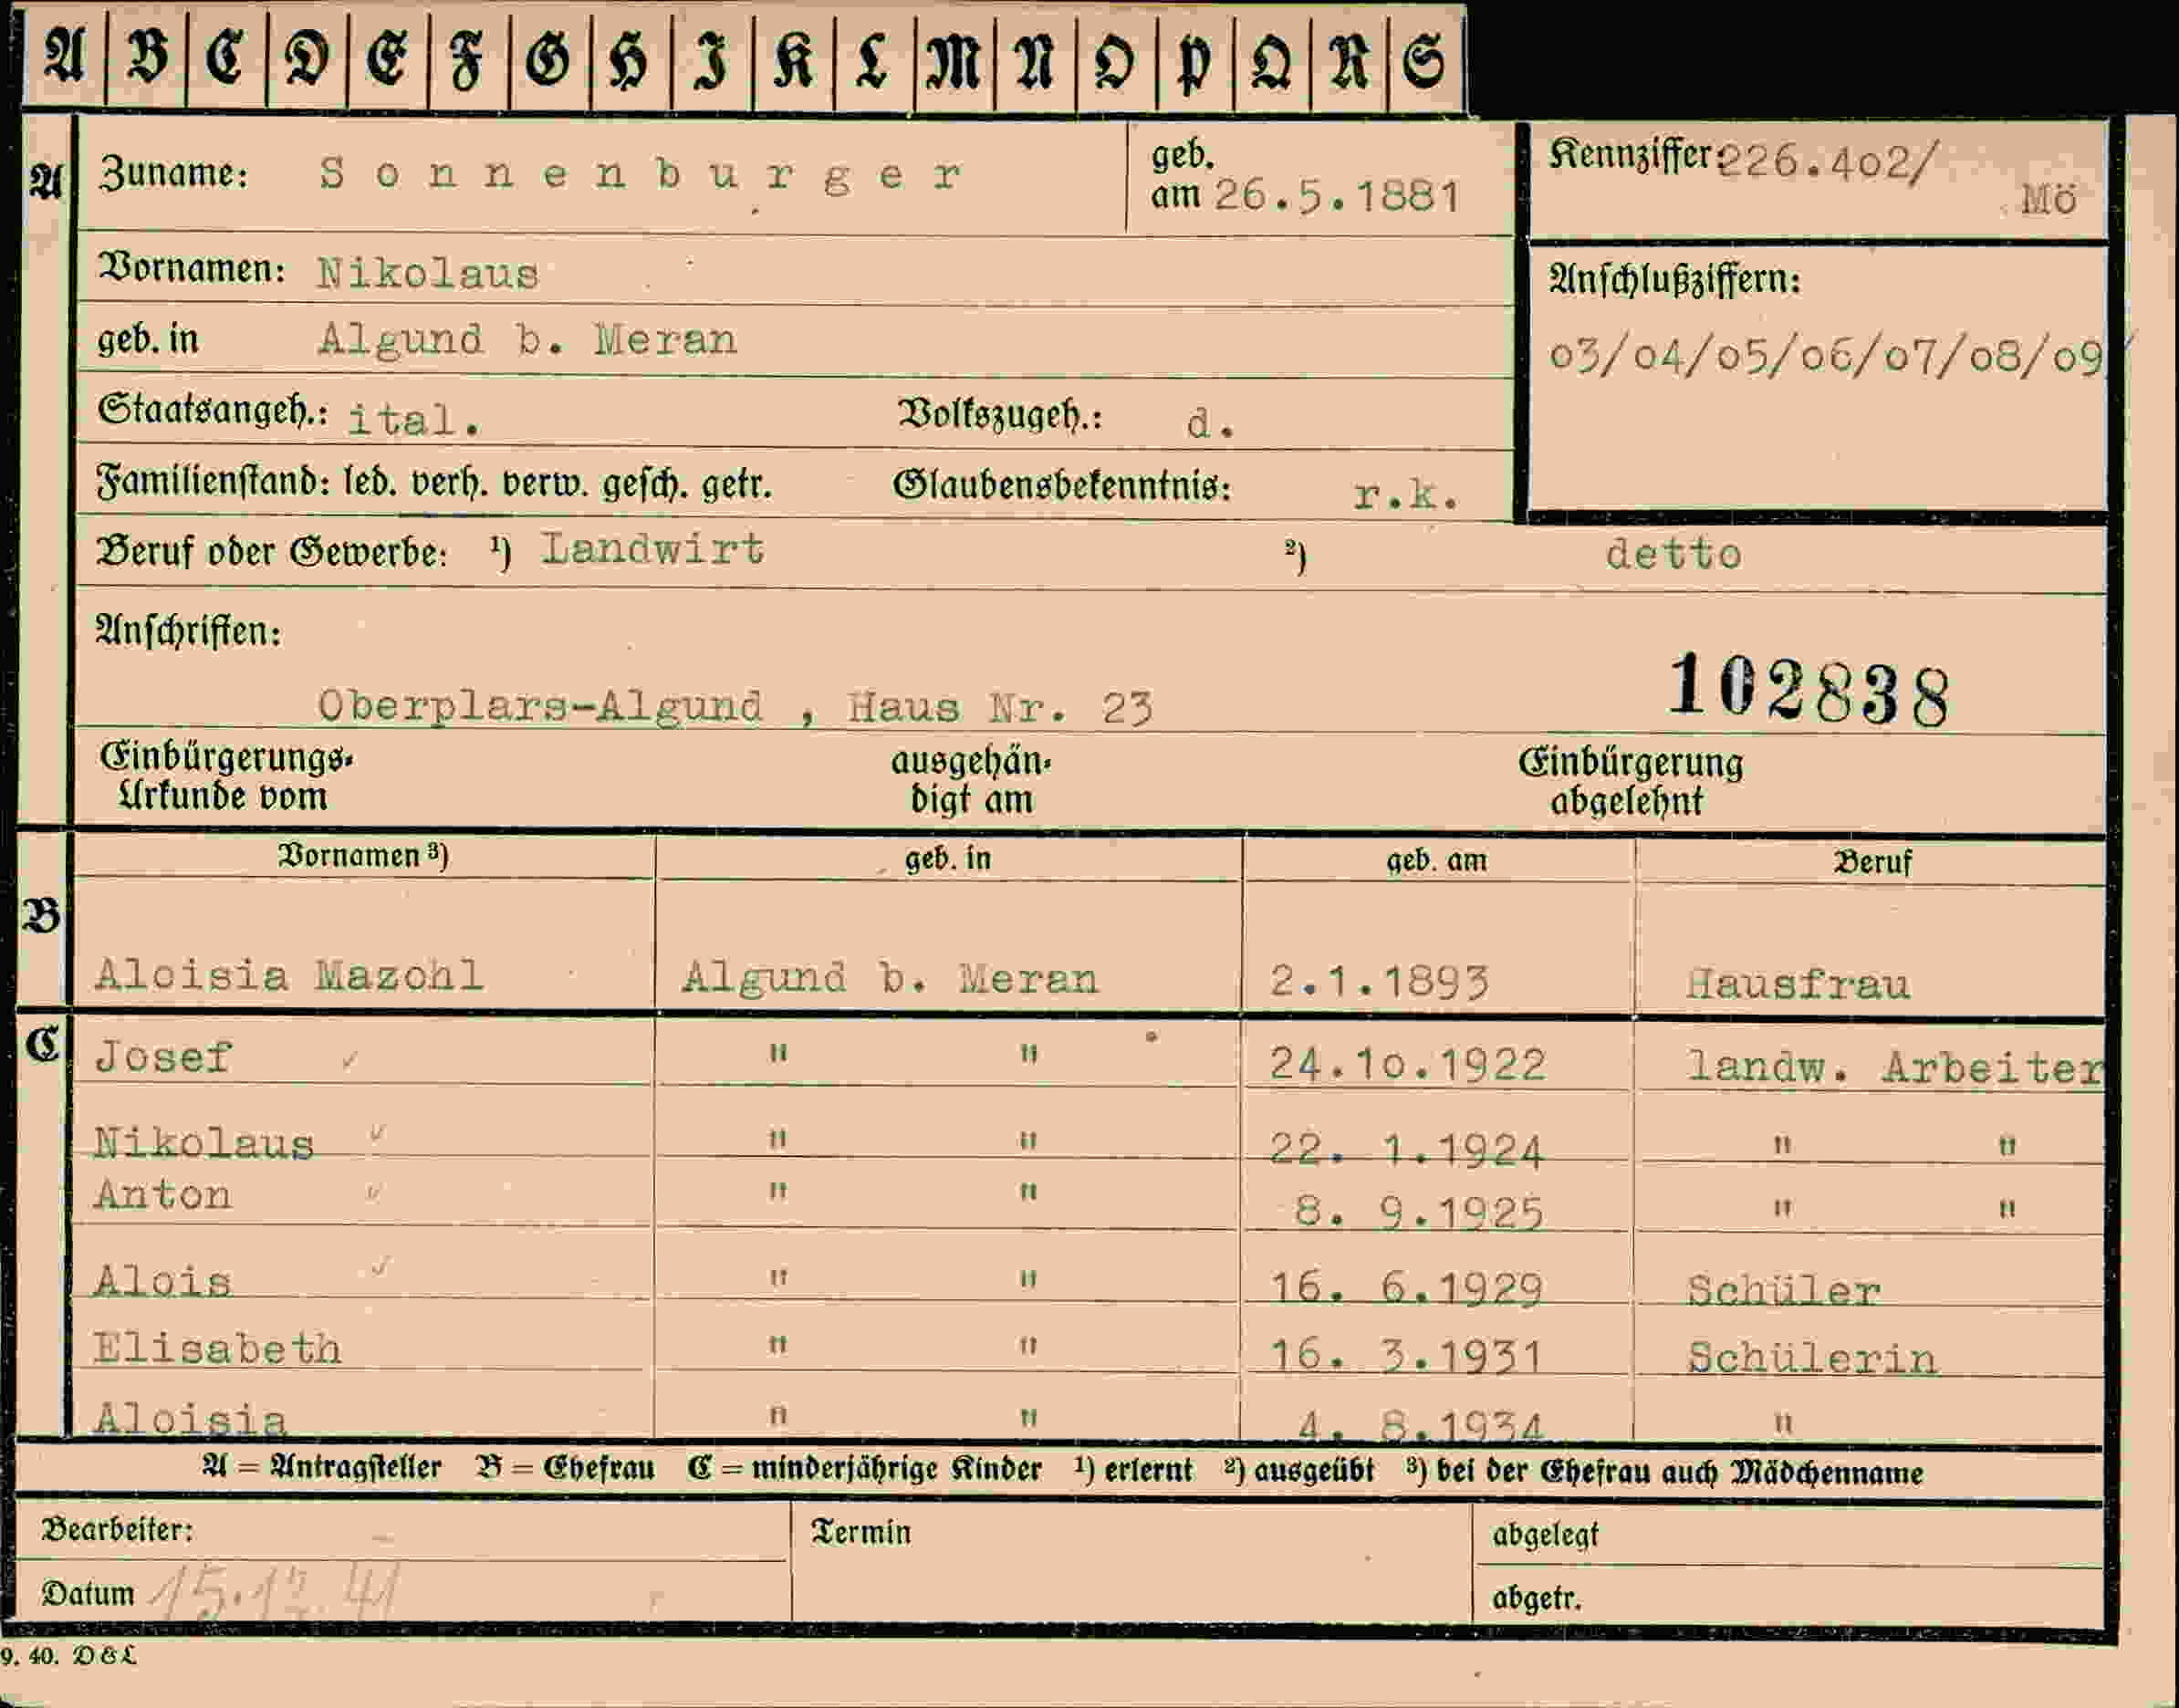 A B C D E F G H I K L M N O P Q R S
A Zuname: Sonnenburger geb. am 26.5.1881 Kennziffer: 226.402/ Mö
Vornamen: Nikolaus
Anschlußziffern:
geb. in Algund b. Meran
03/04/05/06/07/08/09
Staatsangeh.: ital. Volkszugeh.: d.
Familienstand: led. verh. verw. gesch. getr. Glaubensbekenntnis: r.k.
Beruf oder Gewerbe: ¹) Landwirt ²) detto
Anschriften:
Oberplars-Algund , Haus Nr. 23 102838
Einbürgerungs- ausgehän- Einbürgerung
Urkunde vom digt am abgelehnt
Vornamen ³) geb. in geb. am Beruf
B
Aloisia Mazohl Algund b. Meran 2.1.1893 Hausfrau
C Josef " " 24.10.1922 landw. Arbeiter
Nikolaus " " 22. 1.1924 " "
Anton " " 8. 9.1925 " "
Alois " " 16. 6.1929 Schüler
Elisabeth " " 16. 3.1931 Schülerin
Aloisia " " 4. 8.1934 "
A = Antragsteller B = Ehefrau C = minderjährige Kinder ¹) erlernt ²) ausgeübt ³) bei der Ehefrau auch Mädchenname
Bearbeiter: Termin abgelegt
Datum 15.12.41 abgetr.
9. 40. D&L